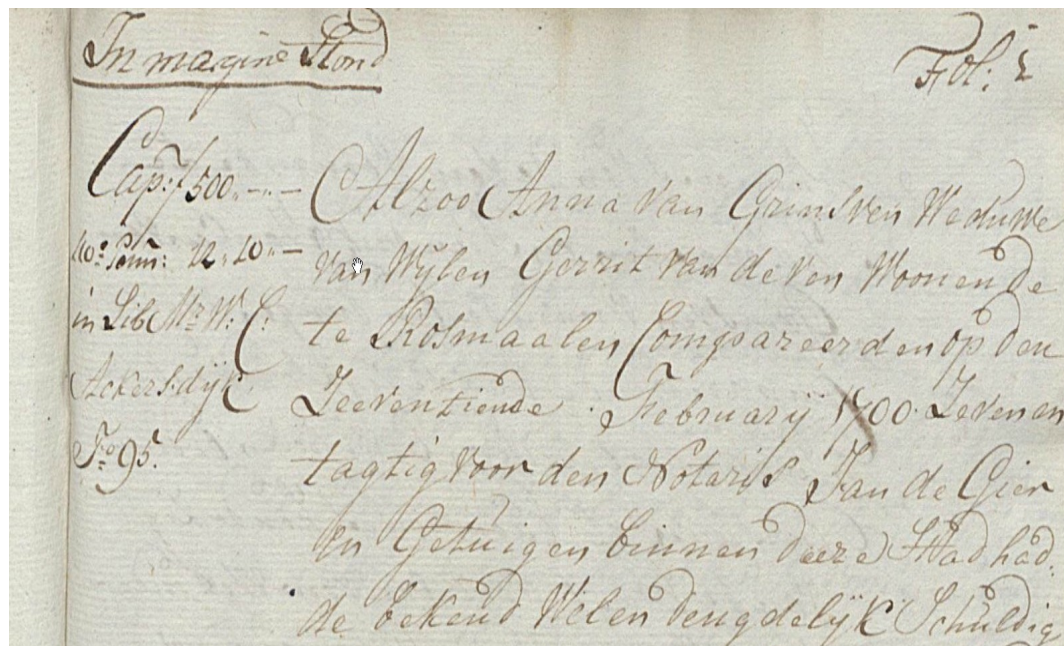 In margine Stond
Fol: 1
Cap: f 500„-„-
40e: Penn: 12„10„-
in Lib Mr. W: C:
Ackersdijk
Fo. 95.
Alzoo Anna van Grinsven Weduwe
van Wylen Gerrit van de ven Woonende
te Rosmaalen Compareerden op den
Zeeventiende February 1700. Zeven en
tagtig voor den Notaris Jan de Gier
en Getuigen binnen deeze Stad had„
de bekend Wel en deugdelijk Schuldig